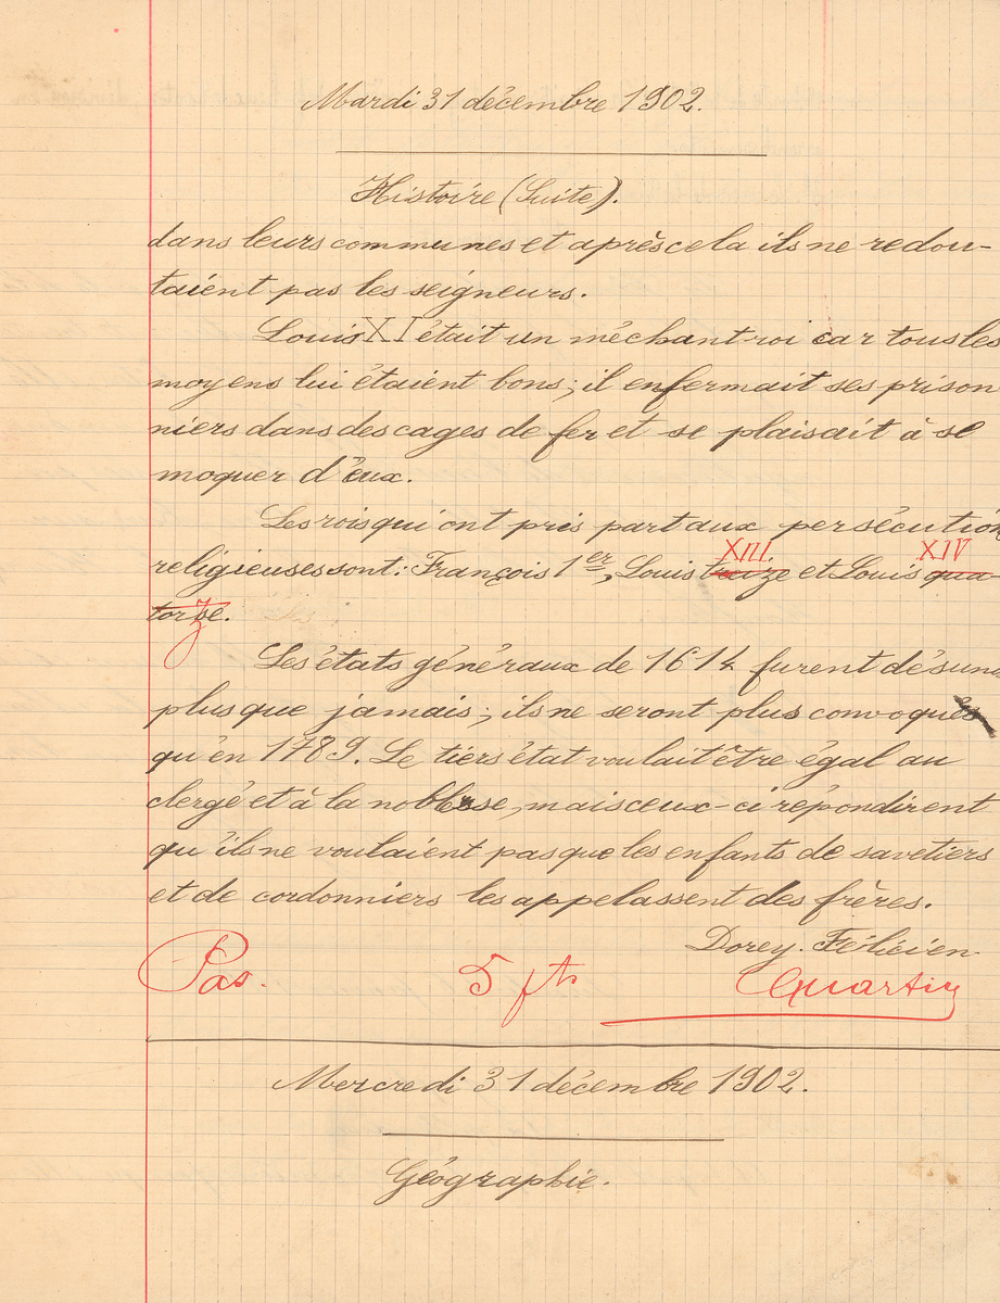 Mardi 31 décembre 1902.
Histoire (Suite).
dans leurs communes et après cela ils ne redou-
taient pas les seigneurs.
Louis XI était un méchant roi car tous les
moyens lui étaient bons; il enfermait ses prison
niers dans des cages de fer et se plaisait à se
moquer d'eux.
Les rois qui ont pris part aux persécution
XIII. XIV
religieuses sont: François 1er, Louis treize et Louis qua-
torse. z
Les états généraux de 1614 furent désunis
plus que jamais; ils ne seront plus convoqués
qu'en 1789. Le tiers état voulait être égal au
clergé et à la noblesse, mais ceux-ci répondirent
qu'ils ne voulaient pas que les enfants de savetiers
et de cordonniers les appelassent des frères.
Dorey. Félicien.
Pas. 5 fts Quartin
Mercredi 31 décembre 1902.
Géographie.